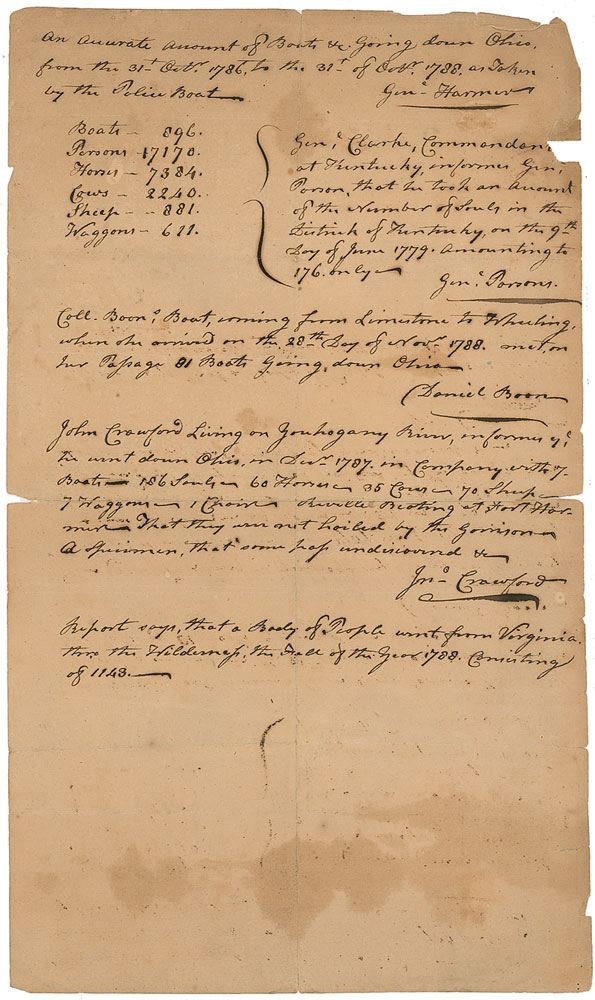 An Accurate Amount of Boats &c. Going down Ohio,
from the 31st Octr. 1786, to the 31st of Octr. 1788. as Taken
by the Police Boat Genl. Harmer
Boats — 896.
Persons — 17170.
Horses — 7384.
Cows — 2240.
Sheep — 881.
Waggons — 611.
Genl. Clarke, Commandan
at Kentucky, informes Genl.
Parson, that he took an Amount
of the Number of Souls in the
District of Kentucky, on the 9th
Day of June 1779. Amounting to
176. only
Genl. Parsons.
Coll. Boons Boat, coming from Limestone to Wheeling,
when she arrived on the 28th Day of Novr. 1788. met, on
her Passage 81 Boats Going down Ohio
Daniel Boon
John Crawford Living on Youhogany River, informes yt.
he went down Ohio, in Decr. 1787. in Company with 7-
Boats — 186 Souls — 60 Horses — 35 Cows — 70 Sheep —
7 Waggons — 1 Chair Revelle Beating at Fort Har-
mer — That they were not hailed by the Garrison —
A Specimen, that some pass undiscovered &c
Jno. Crawford
Report says, that a Body of People went from Virginia
thro the Wilderness, the Fall of the Year 1788. Consisting
of 1143.—